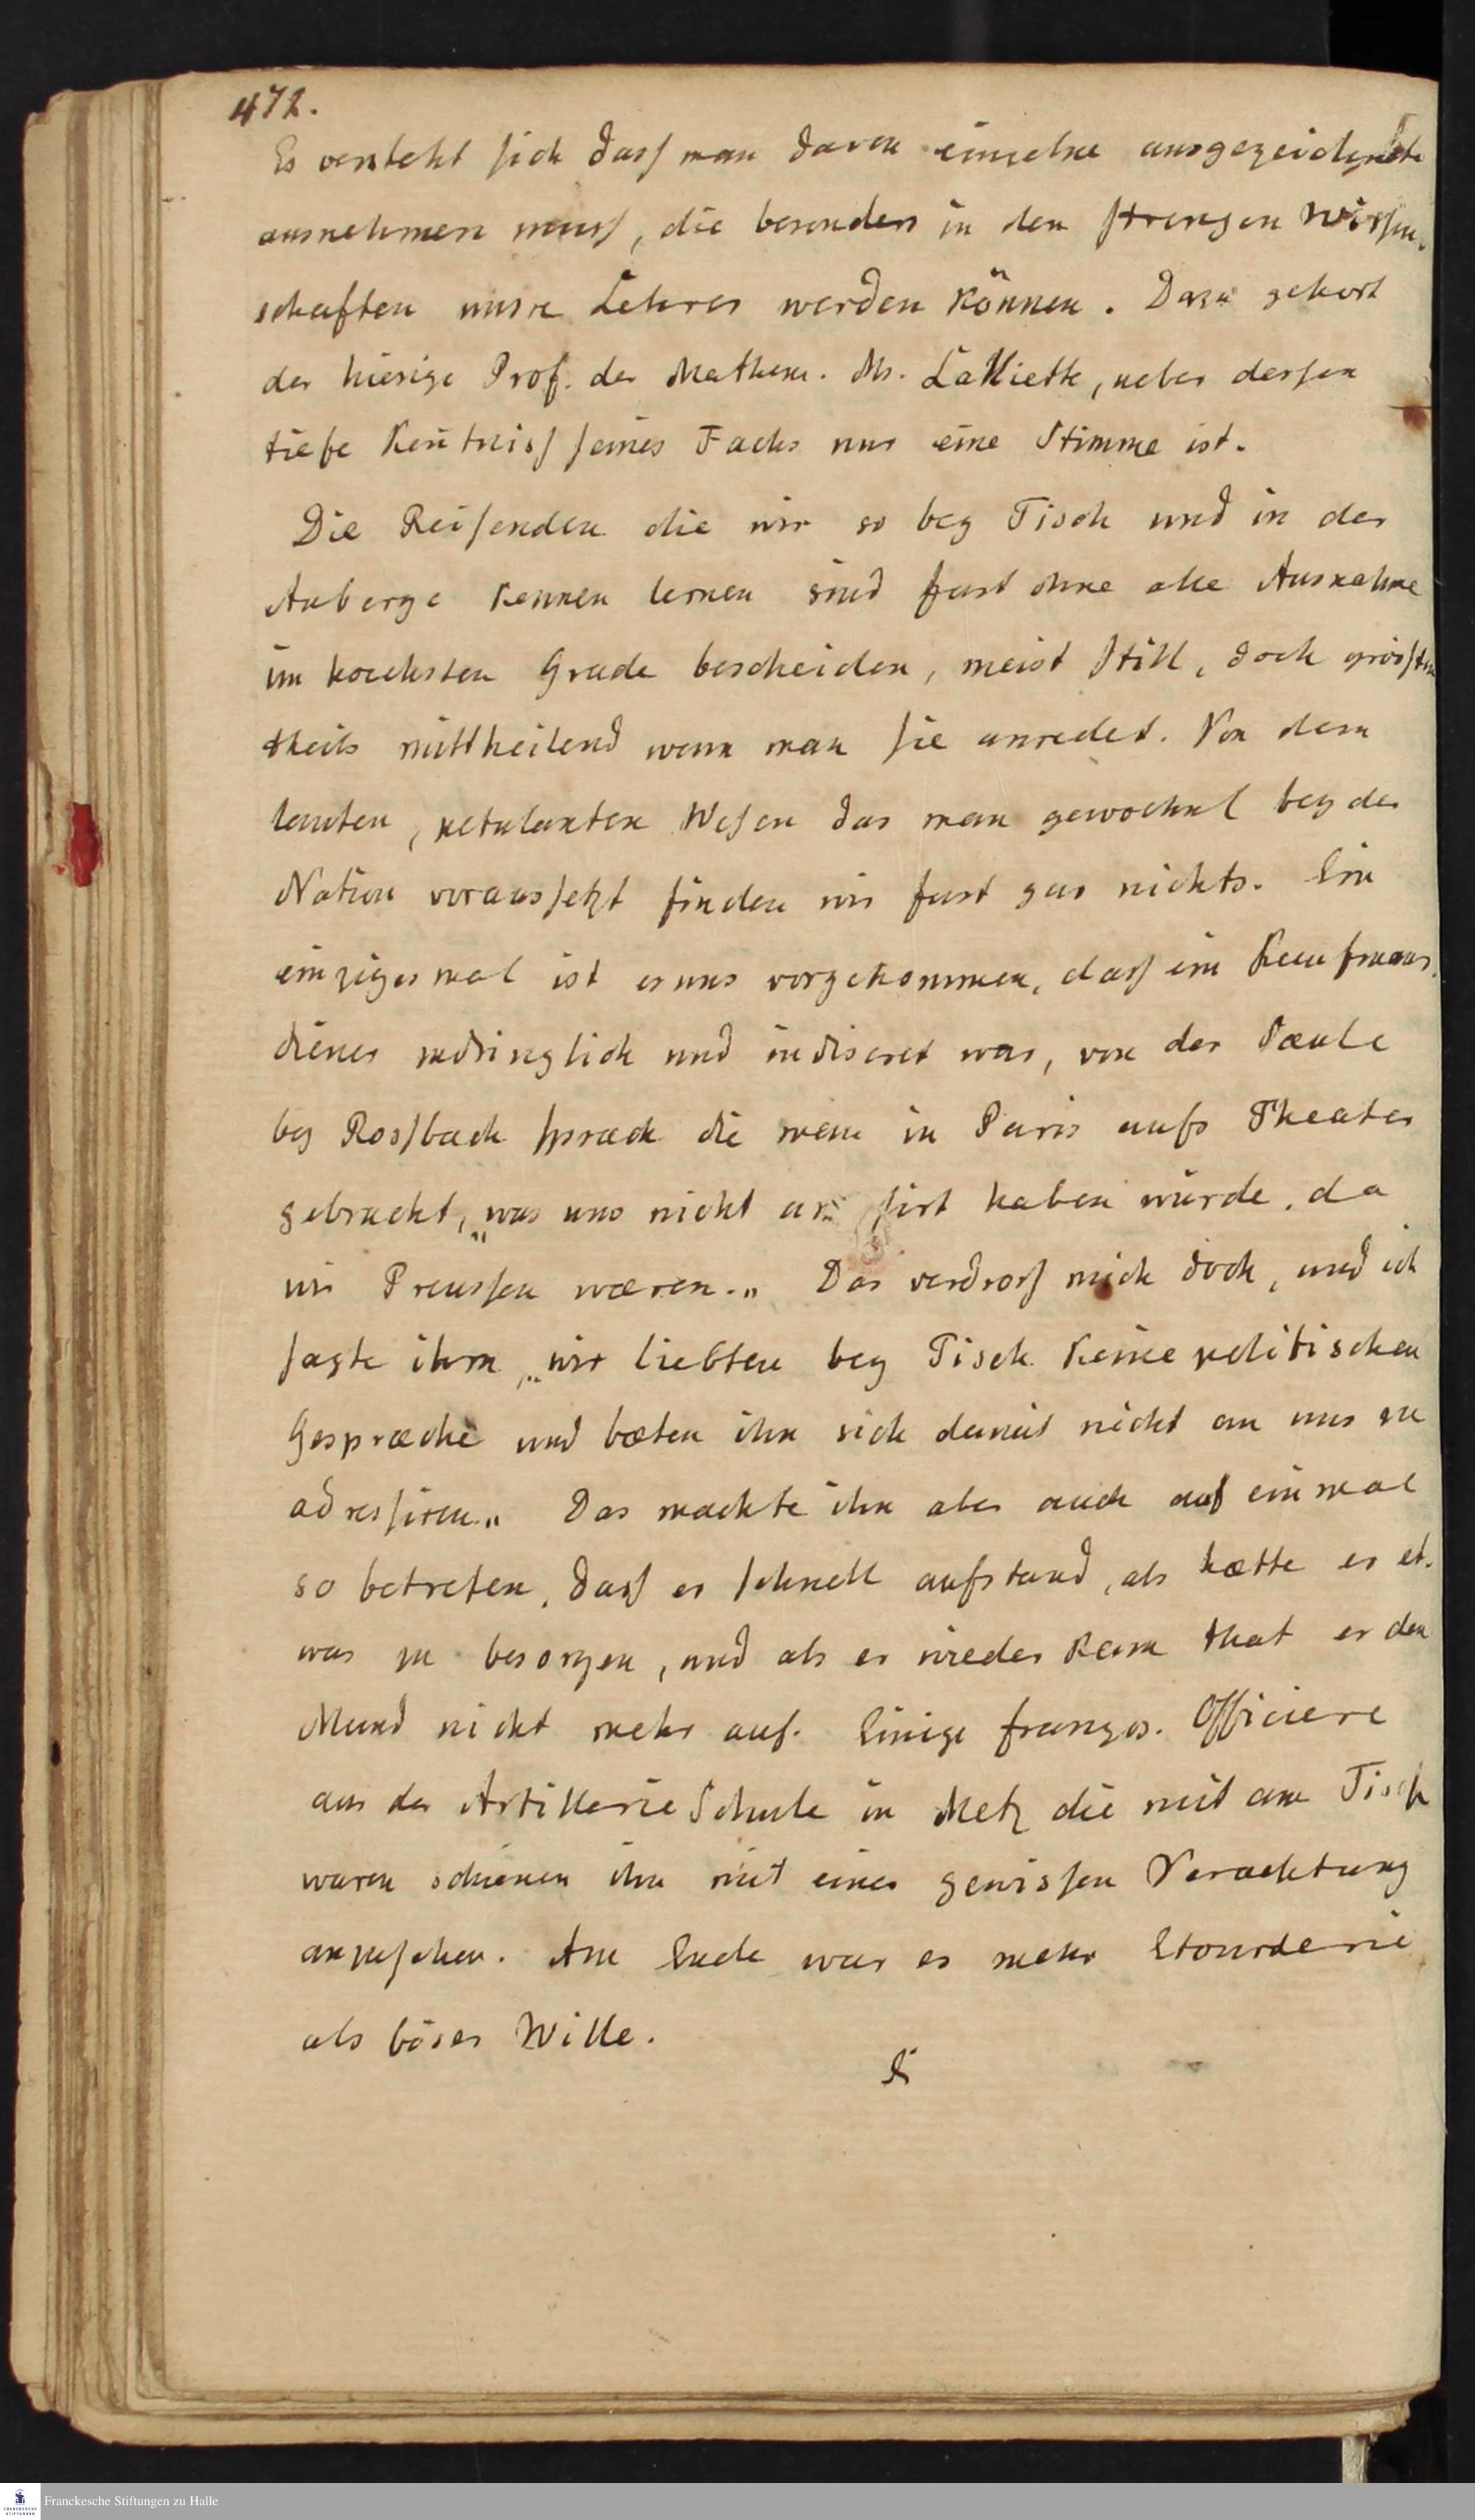 472.
Es versteht sich dass man davon einzelne ausgezeichnete
ausnehmen muss, die besonders in den strengen Wissen-
schaften unsre Lehrer werden können. Dazu gehort
der hiesige Prof. der Mathem. Mr.
tiefe Kentniss seines Fachs nur eine Stimme ist.
Die Reisenden die wir so bey Tisch und in der
Auberge kennen lernen sind fast ohne alle Ausnahme
im hoechsten Grade bescheiden, meist still, doch grössten
theils mittheilend wenn man sie anredet. Von dem
lauten, petulanten Wesen das man gewoehnl bey der
Nation voraussetzt finden wir fast gar nichts. Ein
einziges mal ist es uns vorgekommen, dass ein Kaufmans-
diener zudringlich und indiscret war, von der Sæule
bey Rossbach sprach die man in Paris aufs Theater
gebracht, „was uns nicht haben würde, da
wir Preussen wæren.„ Das verdross mich doch, und ich
sagte ihm „wir liebten bey Tisch keine politischen
Gespræche und bæten ihn sich damit nicht an uns zu
adressiren„ Das machte ihn aber auch auf einmal
so betreten, dass er schnell aufstand, als hætte er et-
was zu besorgen, und als er wieder kam that er den
Mund nicht mehr auf. Einige franzos. Officiere
aus der Artillerie Schule in Metz die mit am Tisch
waren schienen ihn mit einer gewissen Verachtung
anzusehen. Am Ende war es mehr Etourderie
als böser Wille.
Franckesche Stiftungen zu Halle